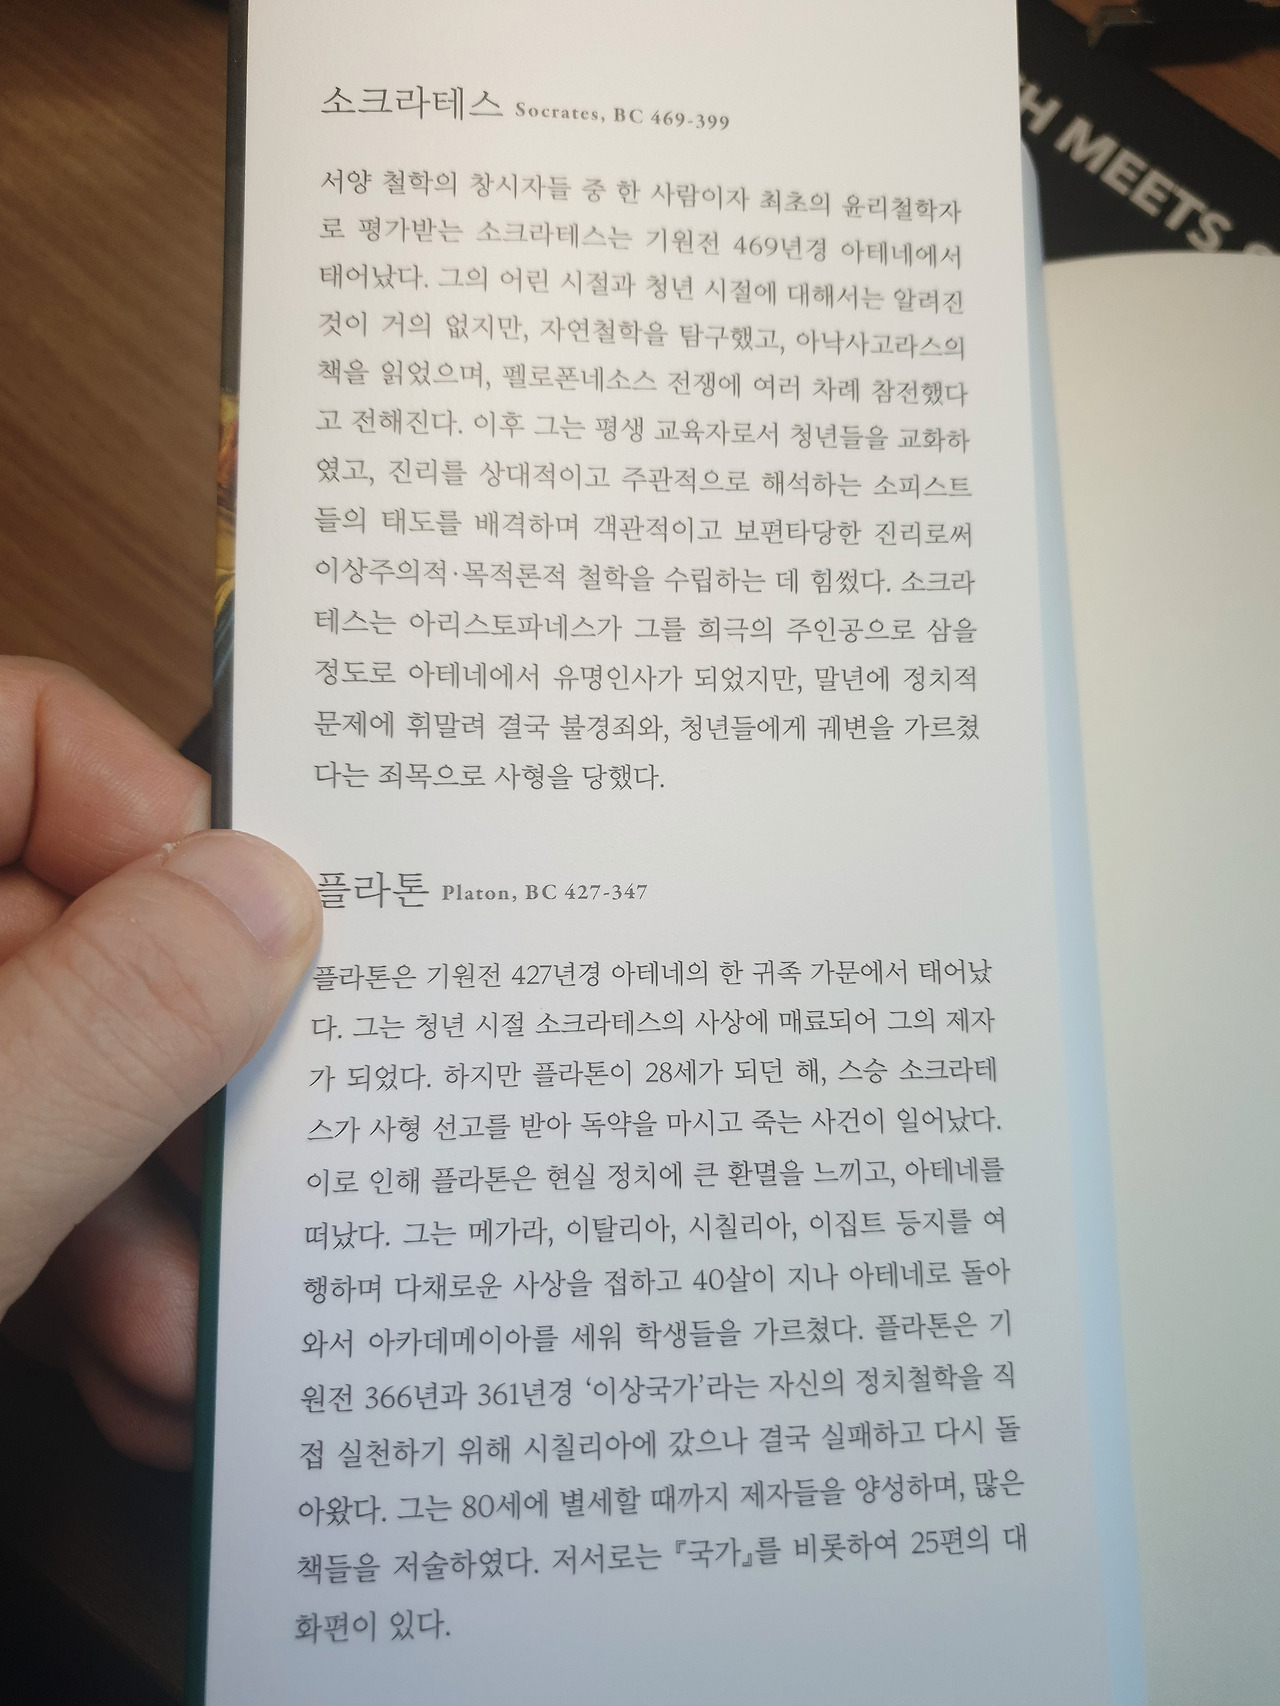 소크라테스 Socrates, BC 469-399
서양 철학의 창시자들 중 한 사람이자 최초의 윤리철학자
로 평가받는 소크라테스는 기원전 469년경 아테네에서
태어났다. 그의 어린 시절과 청년 시절에 대해서는 알려진
것이 거의 없지만, 자연철학을 탐구했고, 아낙사고라스의
책을 읽었으며, 펠로폰네소스 전쟁에 여러 차례 참전했다
고 전해진다. 이후 그는 평생 교육자로서 청년들을 교화하
였고, 진리를 상대적이고 주관적으로 해석하는 소피스트
들의 태도를 배격하며 객관적이고 보편타당한 진리로써
이상주의적·목적론적 철학을 수립하는 데 힘썼다. 소크라
테스는 아리스토파네스가 그를 희극의 주인공으로 삼을
정도로 아테네에서 유명인사가 되었지만, 말년에 정치적
문제에 휘말려 결국 불경죄와, 청년들에게 궤변을 가르쳤
다는 죄목으로 사형을 당했다.
플라톤 Platon, BC 427-347
플라톤은 기원전 427년경 아테네의 한 귀족 가문에서 태어났
다. 그는 청년 시절 소크라테스의 사상에 매료되어 그의 제자
가 되었다. 하지만 플라톤이 28세가 되던 해, 스승 소크라테
스가 사형 선고를 받아 독약을 마시고 죽는 사건이 일어났다.
이로 인해 플라톤은 현실 정치에 큰 환멸을 느끼고, 아테네를
떠났다. 그는 메가라, 이탈리아, 시칠리아, 이집트 등지를 여
행하며 다채로운 사상을 접하고 40살이 지나 아테네로 돌아
와서 아카데메이아를 세워 학생들을 가르쳤다. 플라톤은 기
원전 366년과 361년경 ‘이상국가’라는 자신의 정치철학을 직
접 실천하기 위해 시칠리아에 갔으나 결국 실패하고 다시 돌
아왔다. 그는 80세에 별세할 때까지 제자들을 양성하며, 많은
책들을 저술하였다. 저서로는 『국가』를 비롯하여 25편의 대
화편이 있다.
MEETS